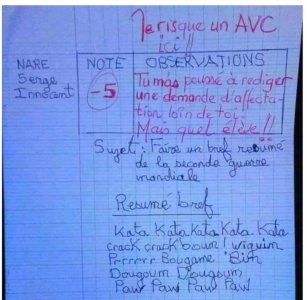 Je risque un AVC
ici !!
NARE
Serge
Innocent
NOTE
-5
OBSERVATIONS
Tu m'as poussé à rediger
une demande d'affecta-
tion loin de toi.
Mais quel élève !!
Sujet : Faire un bref resumé
de la seconde guerre
mondiale
Resumé bref
Kata Kata Kata Kata Kata
crack crack boum ! wiquim
Prrrrrr Bougame Bim
Dougoum Dougoum
Paw Paw Paw Paw Paw